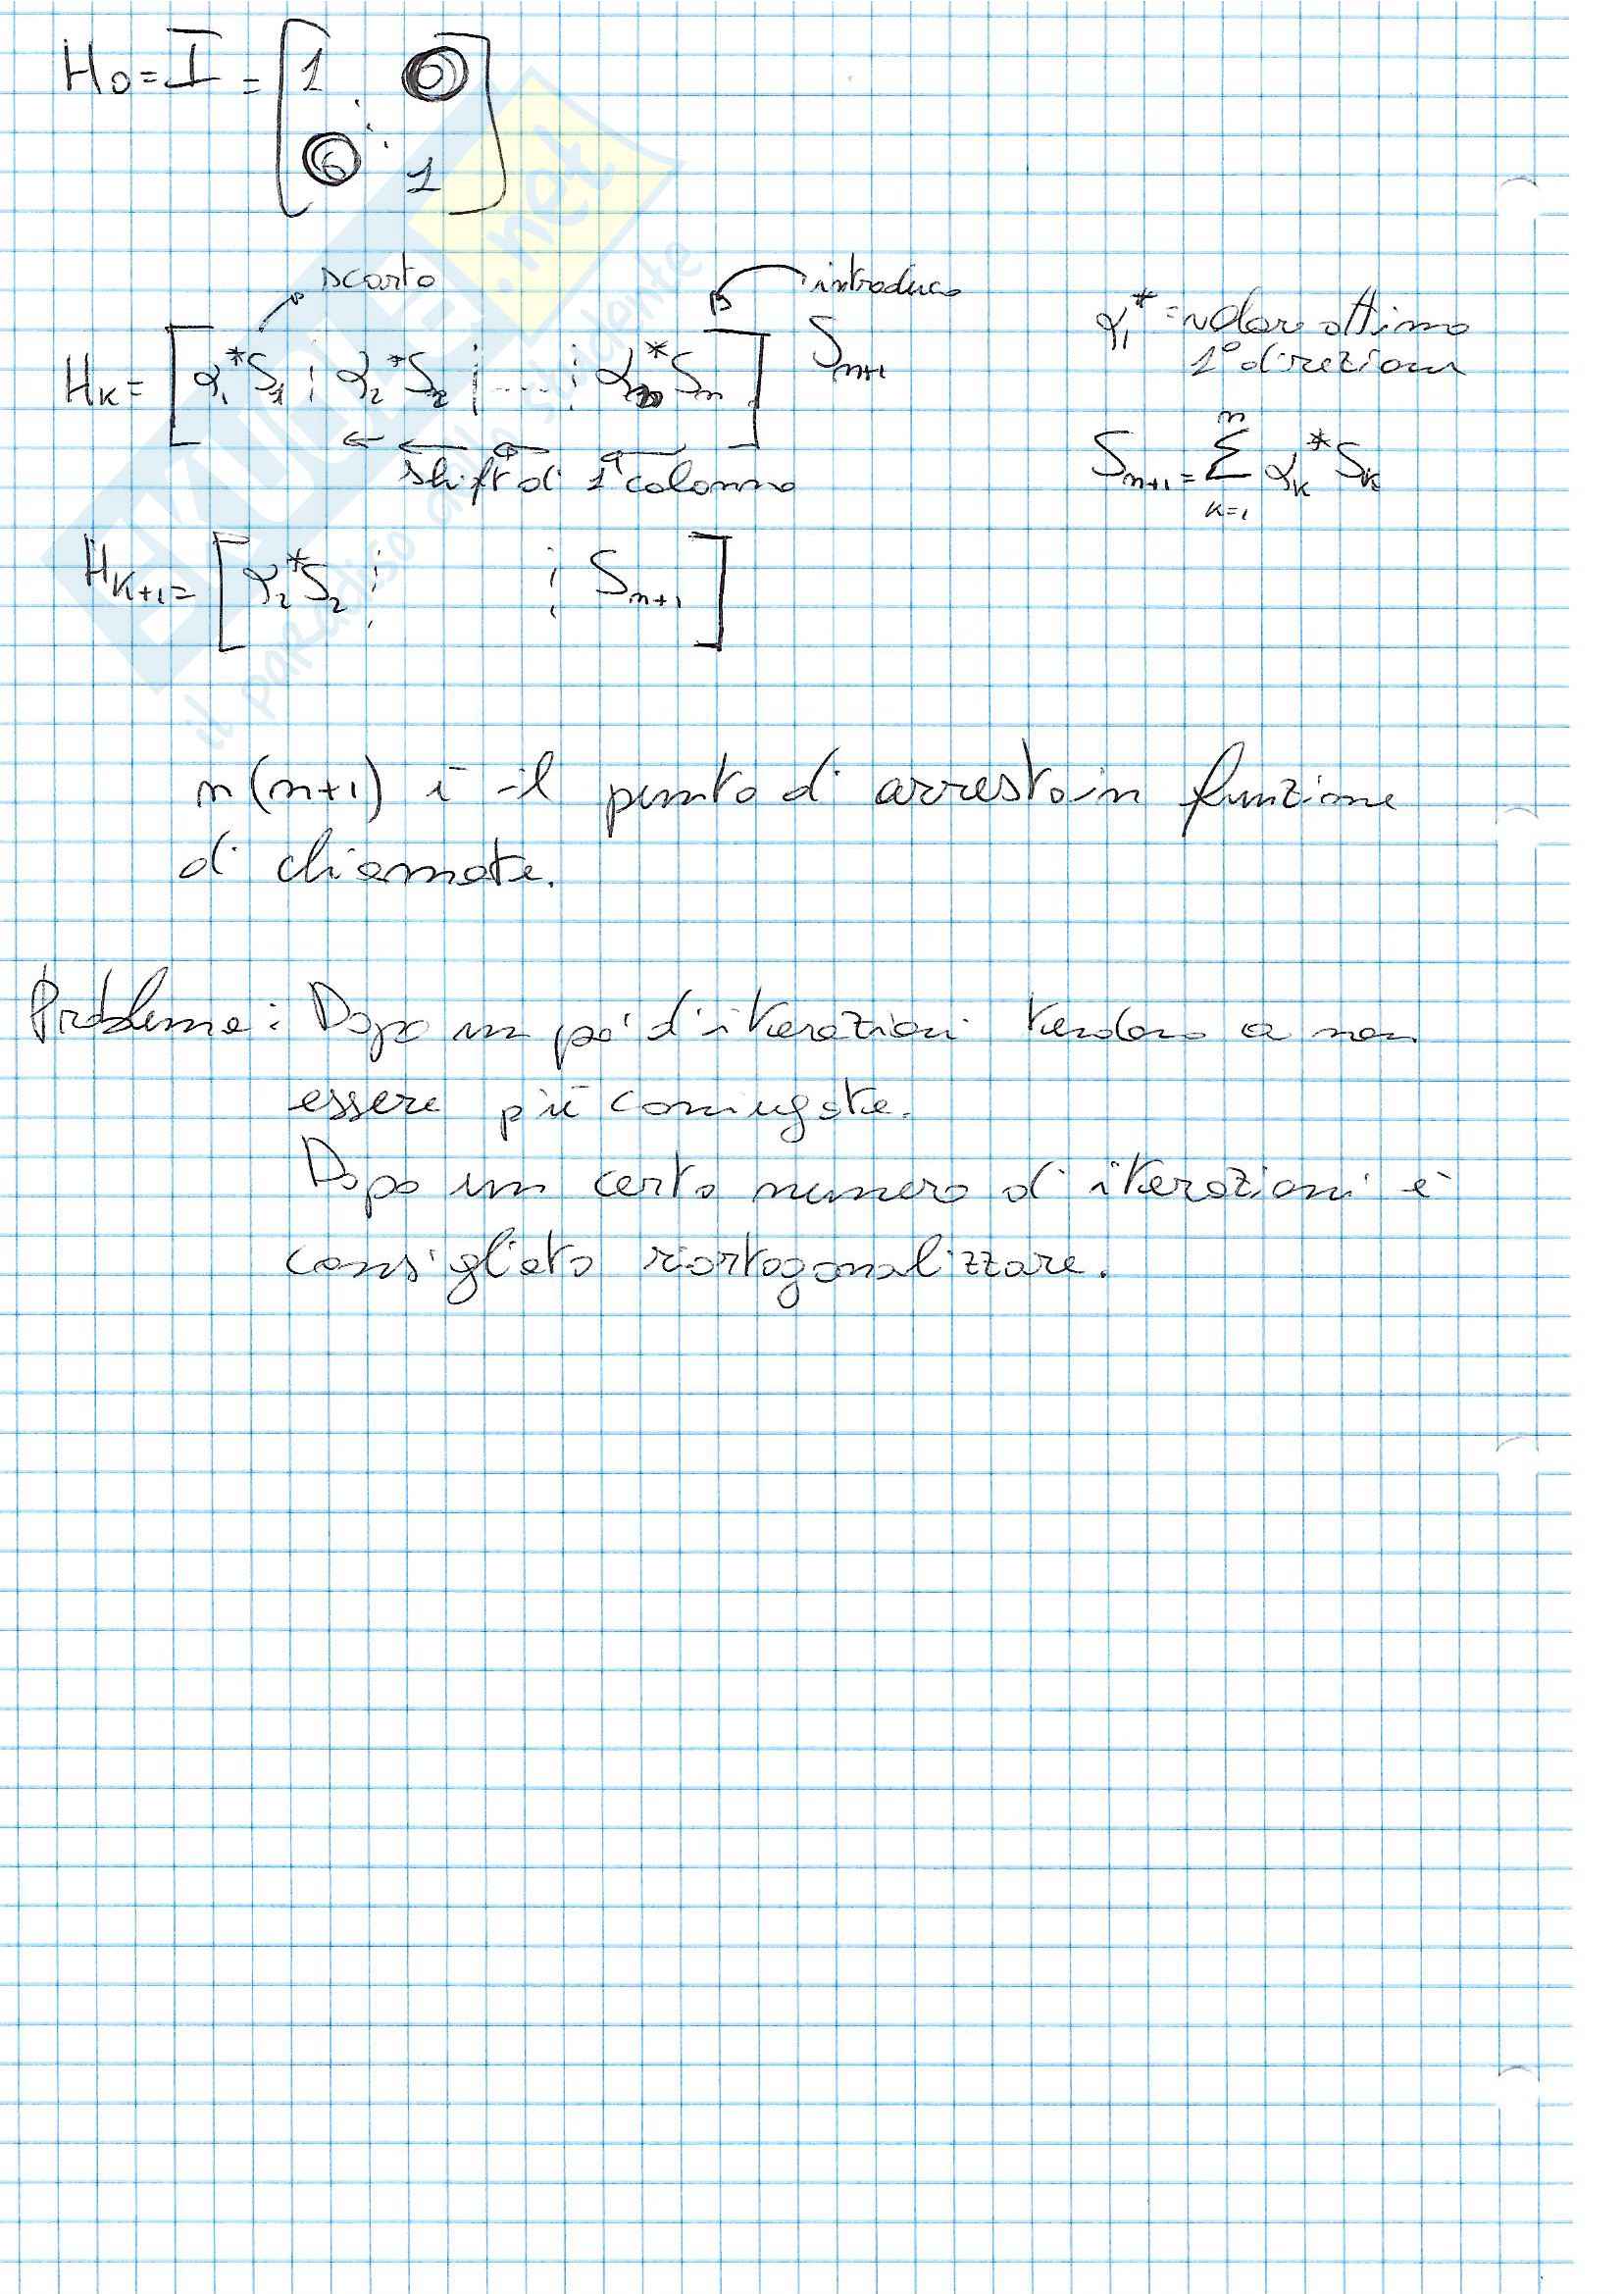 H₀ = I = [1 ⋱ 0
0 ⋱ 1]
scarto
introduco
Hₖ = [α₁*S₁ ¦ α₂*S₂ ¦ .... ¦ αₙ*Sₙ] Sₙ₊₁
α₁* = valore ottimo
1° direzione
← ← ← ←
shift di 1 colonna
Sₙ₊₁ = Σₖ₌₁ⁿ αₖ* Sₖ
Hₖ₊₁ = [α₂*S₂ ¦ ¦ Sₙ₊₁]
n(n+1) è il punto di arresto in funzione
di chiamate.
Problema: Dopo un po' d'iterazioni tendono a non
essere più coniugate.
Dopo un certo numero di iterazioni è
consigliato riortogonalizzare.
.net
il paradiso dello studente